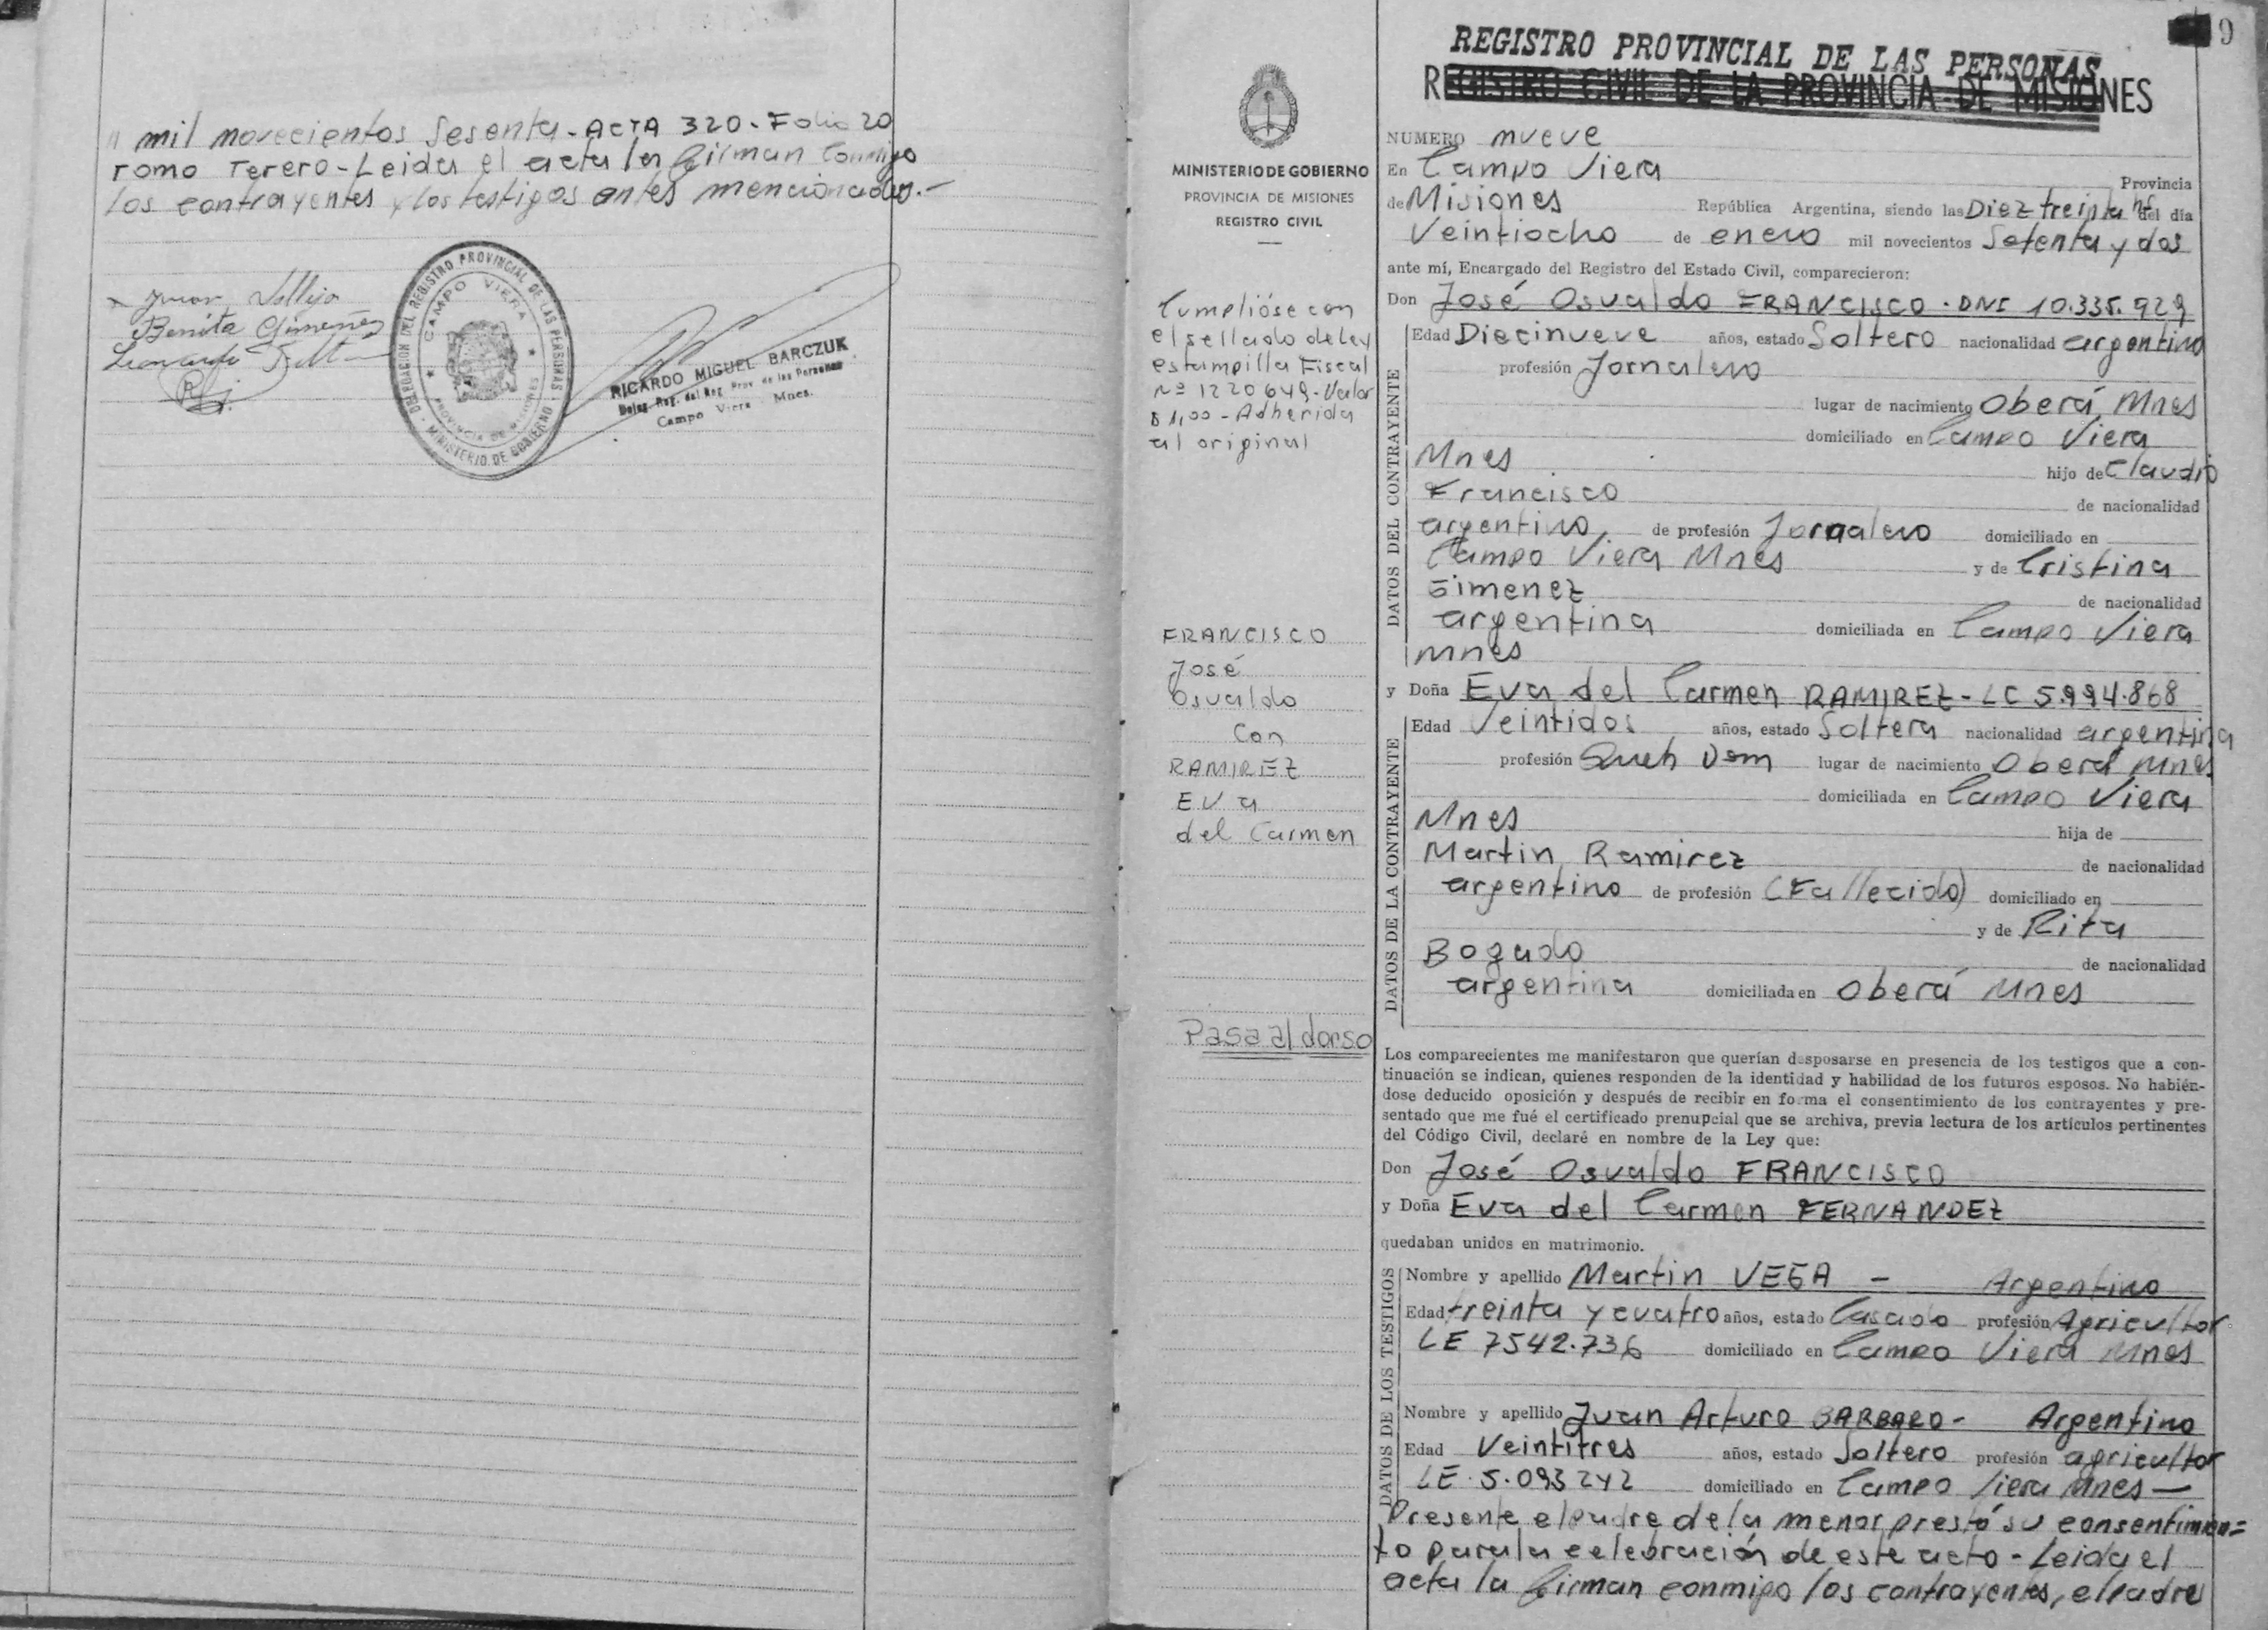 mil novecientos Sesenta - ACTA 320 - Folio 20
Tomo Terero - Leida el acta la firman Conmigo
los contrayentes y los testigos antes mencionados.-
Benita Gimenez
DELEGACION DEL REGISTRO PROVINCIAL DE LAS PERSONAS
CAMPO VIERA
PROVINCIA DE MISIONES
MINISTERIO DE GOBIERNO
RICARDO MIGUEL BARCZUK
Deleg. Reg. del Reg. Prov. de las Personas
Campo Viera Mnes.
9
REGISTRO PROVINCIAL DE LAS PERSONAS
REGISTRO CIVIL DE LA PROVINCIA DE MISIONES
MINISTERIO DE GOBIERNO
PROVINCIA DE MISIONES
REGISTRO CIVIL
Cumplióse con
el sellado de ley
estampilla Fiscal
Nº 1220649 - Valor
$ 1,00 - Adherida
al original
FRANCISCO
José
Osvaldo
Con
RAMIREZ
Eva
del Carmen
Pasa al dorso
NUMERO nueve
En Campo Viera Provincia
de Misiones República Argentina, siendo las Diez treinta hs del día
Veintiocho de enero mil novecientos Setenta y dos
ante mí, Encargado del Registro del Estado Civil, comparecieron:
Don José Osvaldo FRANCISCO - DNI 10.335.929
DATOS DEL CONTRAYENTE
Edad Diecinueve años, estado Soltero nacionalidad argentino
profesión Jornalero
lugar de nacimiento Oberá, Mnes
domiciliado en Campo Viera
Mnes hijo de Claudio
Francisco de nacionalidad
argentino de profesión Jornalero domiciliado en
Campo Viera Mnes y de Cristina
Gimenez de nacionalidad
argentina domiciliada en Campo Viera
Mnes
y Doña Eva del Carmen RAMIREZ - LC 5.994.868
DATOS DE LA CONTRAYENTE
Edad Veintidos años, estado Soltera nacionalidad argentina
profesión Queh Dom lugar de nacimiento Oberá Mnes
domiciliada en Campo Viera
Mnes hija de
Martin Ramirez de nacionalidad
argentino de profesión (Fallecido) domiciliado en
y de Rita
Bogado de nacionalidad
argentina domiciliada en Oberá Mnes
Los comparecientes me manifestaron que querían desposarse en presencia de los testigos que a con-
tinuación se indican, quienes responden de la identidad y habilidad de los futuros esposos. No habién-
dose deducido oposición y después de recibir en forma el consentimiento de los contrayentes y pre-
sentado que me fué el certificado prenupcial que se archiva, previa lectura de los artículos pertinentes
del Código Civil, declaré en nombre de la Ley que:
Don José Osvaldo FRANCISCO
y Doña Eva del Carmen FERNANDEZ
quedaban unidos en matrimonio.
DATOS DE LOS TESTIGOS
Nombre y apellido Martin VEGA - Argentino
Edad treinta y cuatro años, estado Casado profesión Agricultor
LE 7542.736 domiciliado en Campo Viera Mnes
Nombre y apellido Juan Arturo BARBARO - Argentino
Edad Veintitres años, estado Soltero profesión agricultor
LE 5.093242 domiciliado en Campo Viera Mnes —
Presente el padre de la menor prestó su consentimien=
to para la celebración de este acto - Leida el
acta la firman conmigo los contrayentes, el padre